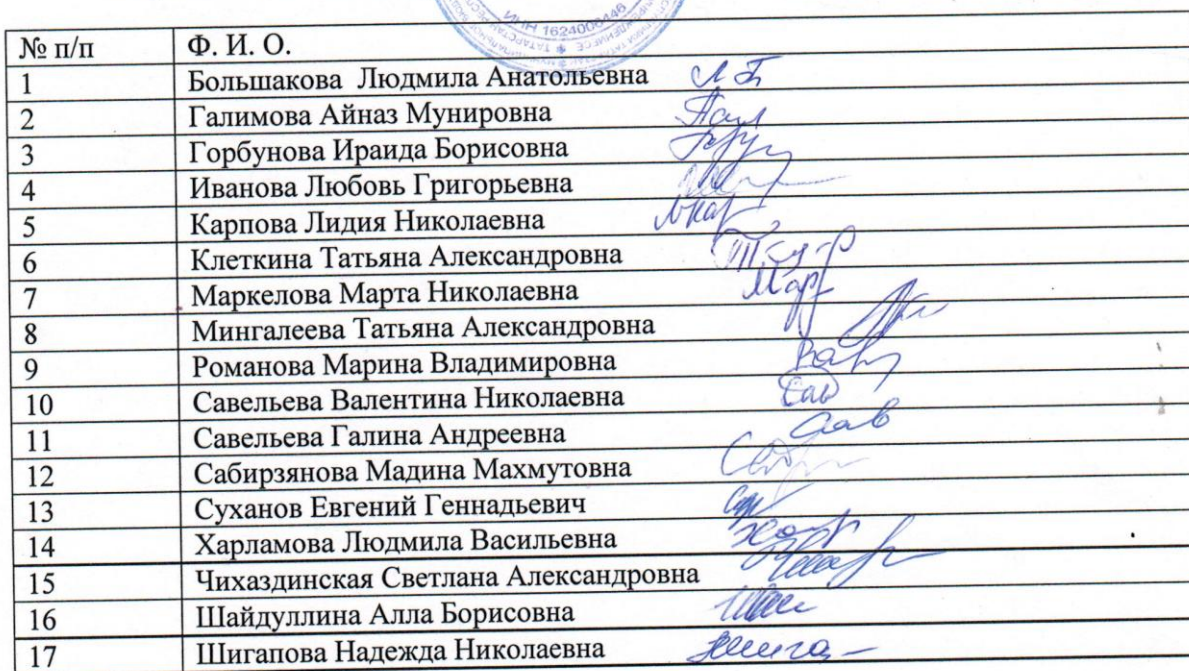 ИНН 1624006446
№ п/п Ф. И. О.
1 Большакова Людмила Анатольевна
2 Галимова Айназ Мунировна
3 Горбунова Ираида Борисовна
4 Иванова Любовь Григорьевна
5 Карпова Лидия Николаевна
6 Клеткина Татьяна Александровна
7 Маркелова Марта Николаевна
8 Мингалеева Татьяна Александровна
9 Романова Марина Владимировна
10 Савельева Валентина Николаевна
11 Савельева Галина Андреевна
12 Сабирзянова Мадина Махмутовна
13 Суханов Евгений Геннадьевич
14 Харламова Людмила Васильевна
15 Чихаздинская Светлана Александровна
16 Шайдуллина Алла Борисовна
17 Шигапова Надежда Николаевна